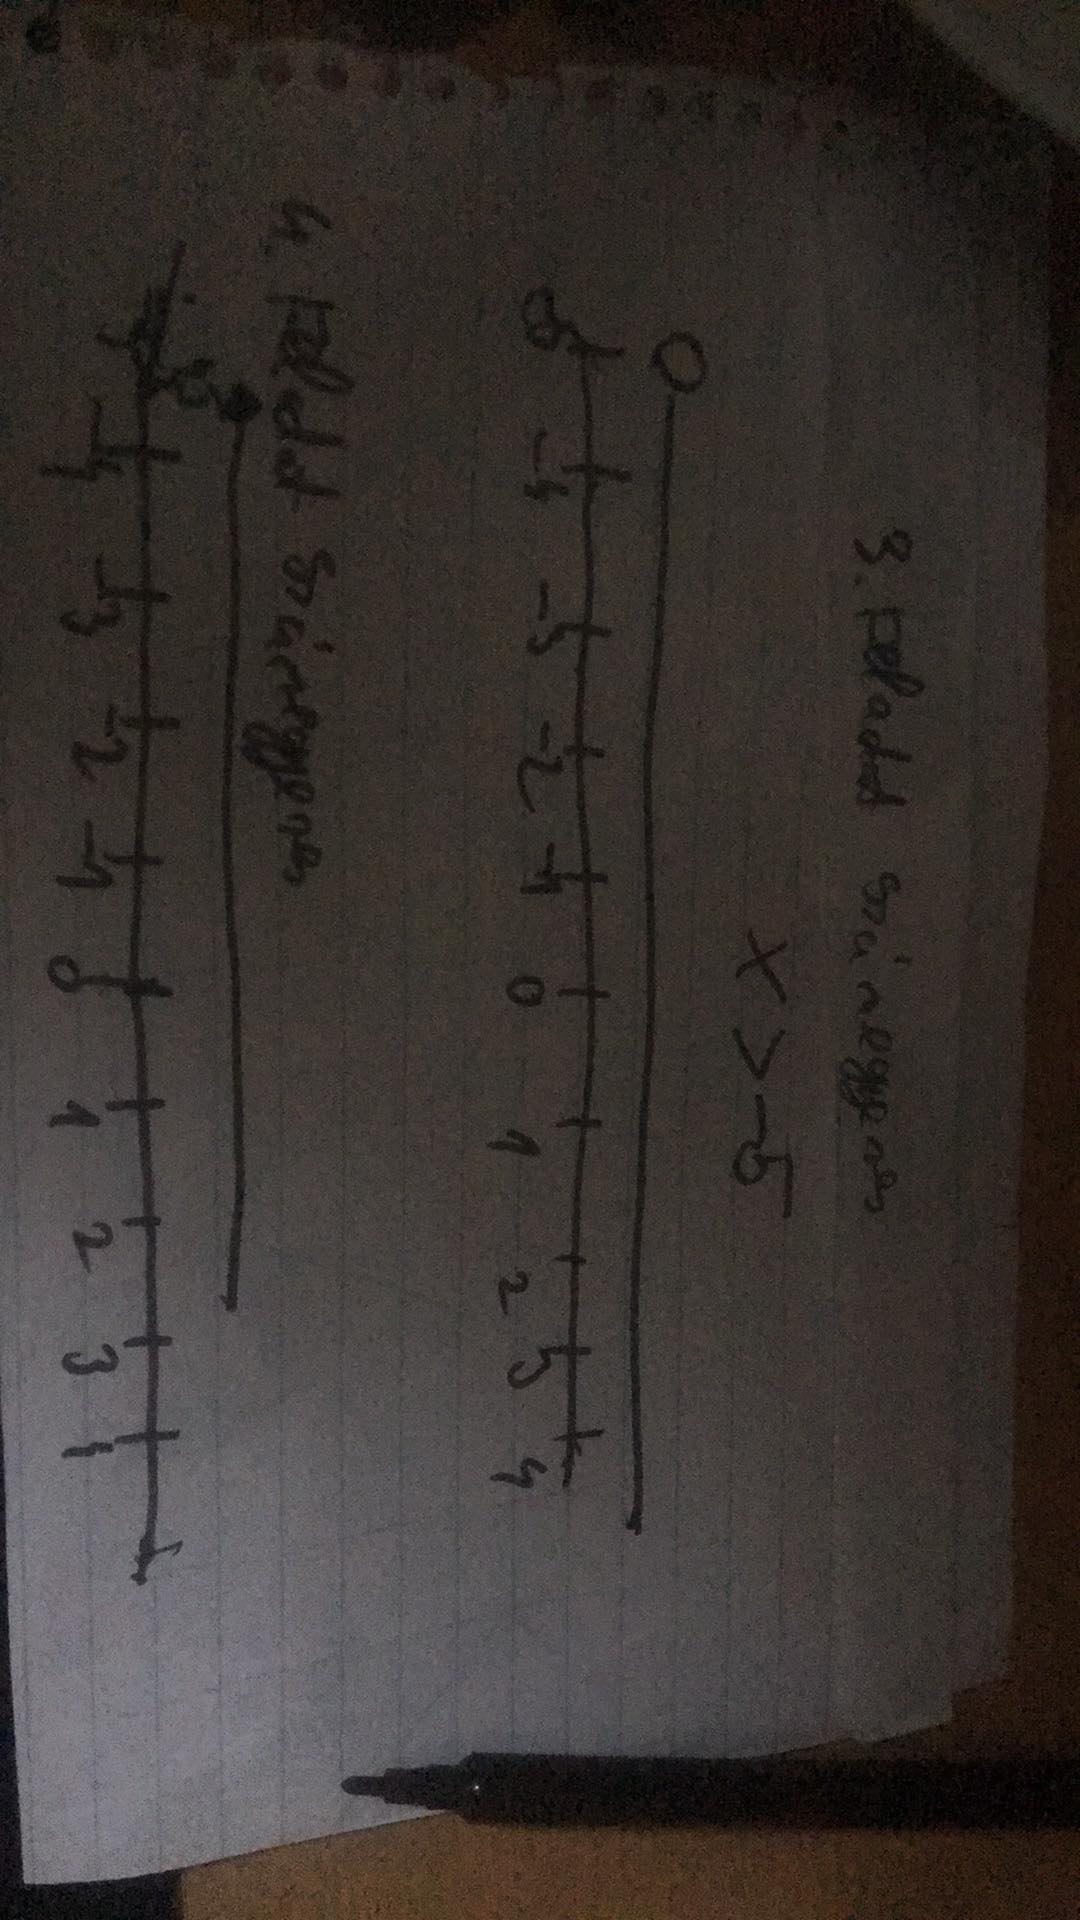 3. feladat számegyenes
x > -5
-4 -3 -2 -1 0 1 2 3 4
4. feladat számegyenes
-4 -3 -2 -1 0 1 2 3 4